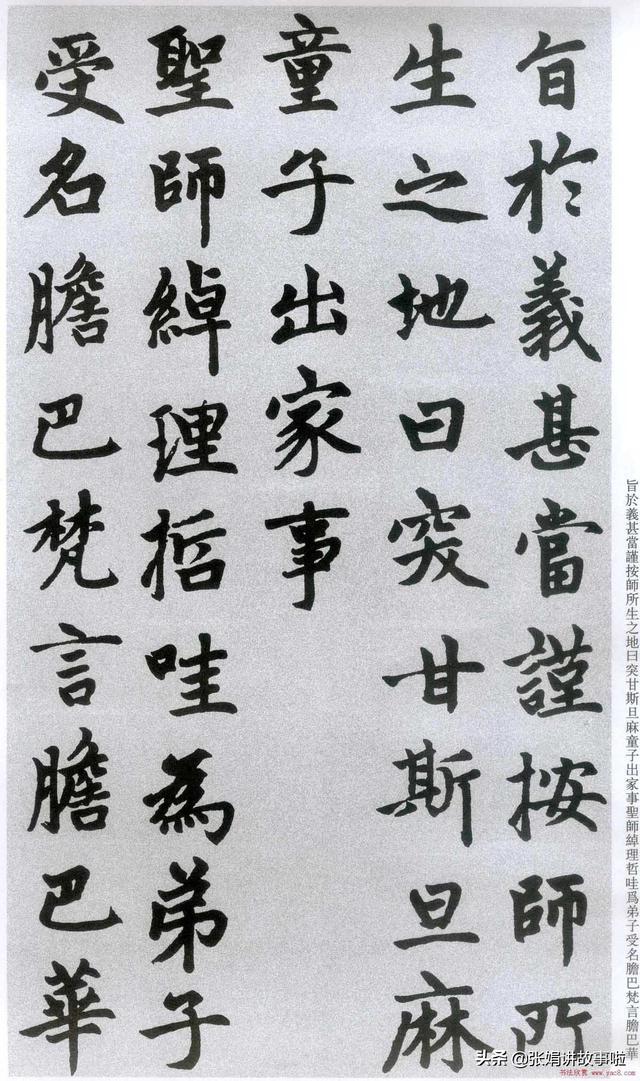 旨於義甚當謹按師所
生之地曰突甘斯旦麻
童子出家事
聖師綽理哲哇為弟子
受名膽巴梵言膽巴華
旨於義甚當謹按師所生之地曰突甘斯旦麻童子出家事聖師綽理哲哇爲弟子受名膽巴梵言膽巴華
头条 @张娟讲故事啦
书法欣赏 www.yac8.com